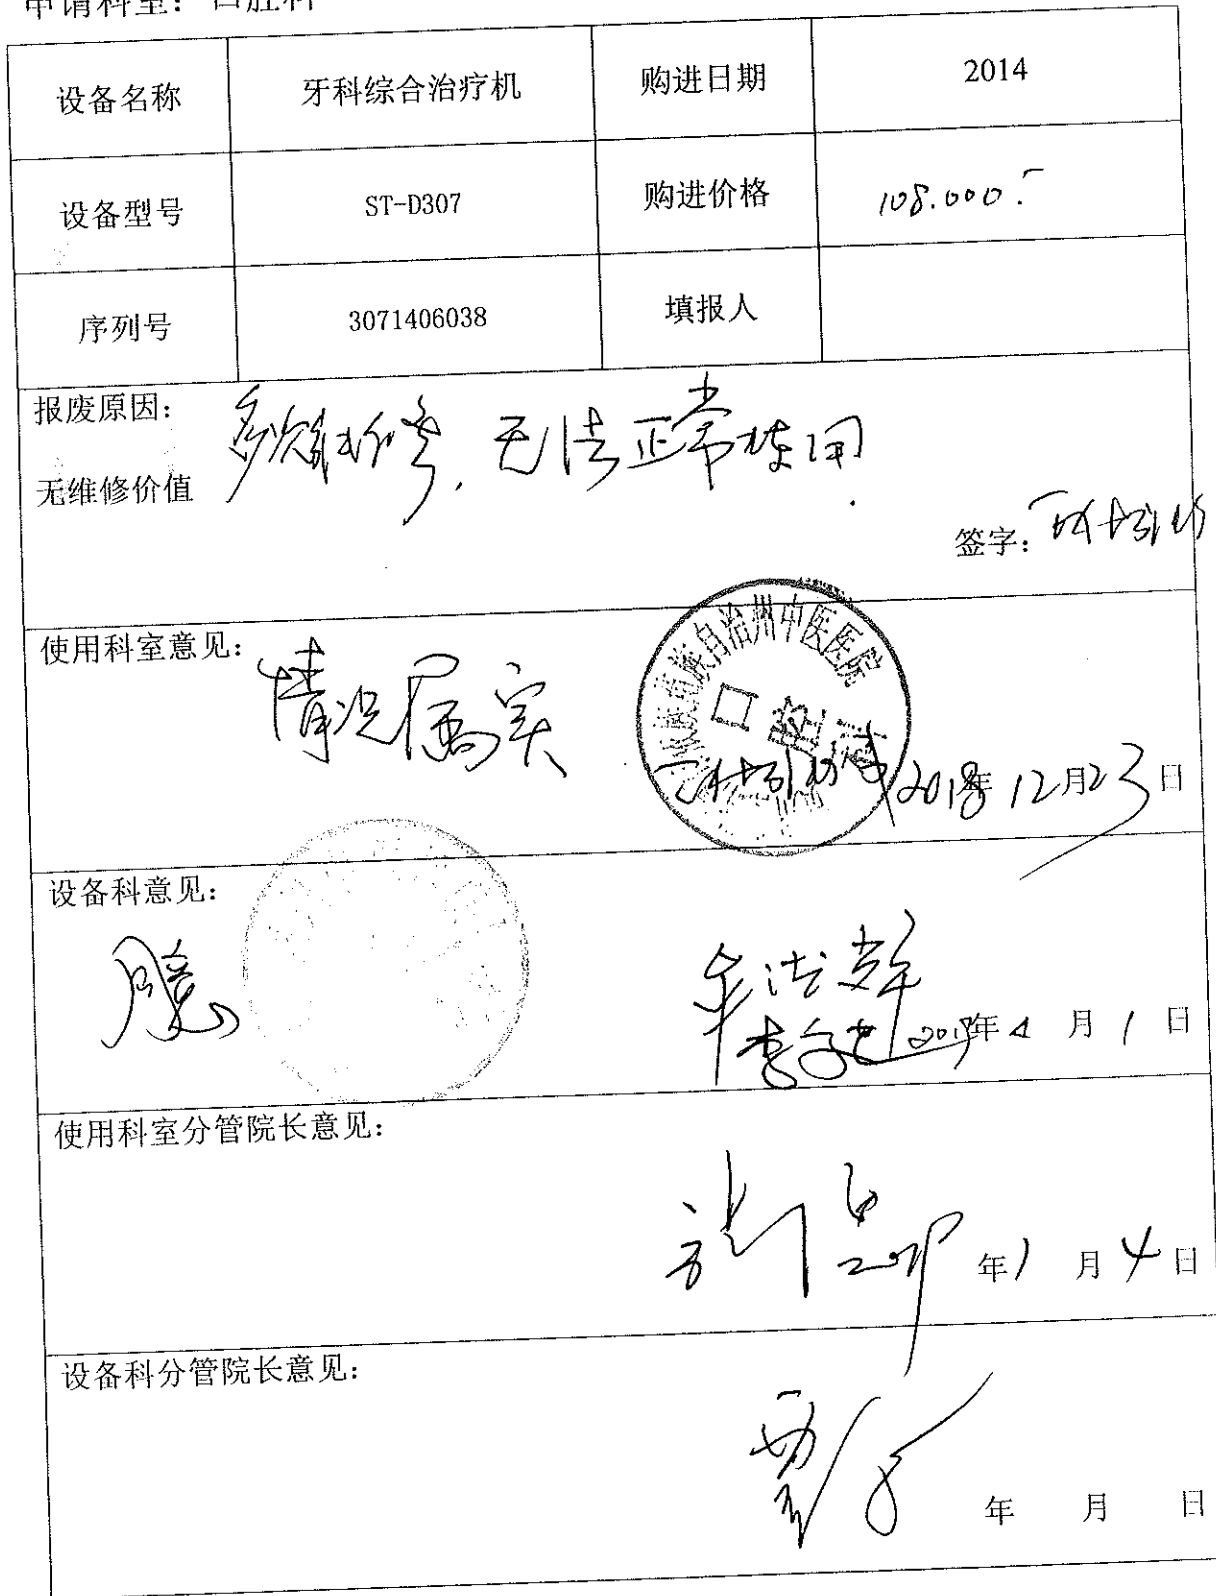 申请科室：口腔科
设备名称 牙科综合治疗机 购进日期 2014
设备型号 ST-D307 购进价格 108.000.-
序列号 3071406038 填报人
报废原因： 多次维修，无法正常使用.
无维修价值
签字：
使用科室意见： 情况属实
族自治州中医医院
口腔科
2018年12月23日
设备科意见：
年 月 1 日
使用科室分管院长意见：
年 1 月 4 日
设备科分管院长意见：
年 月 日